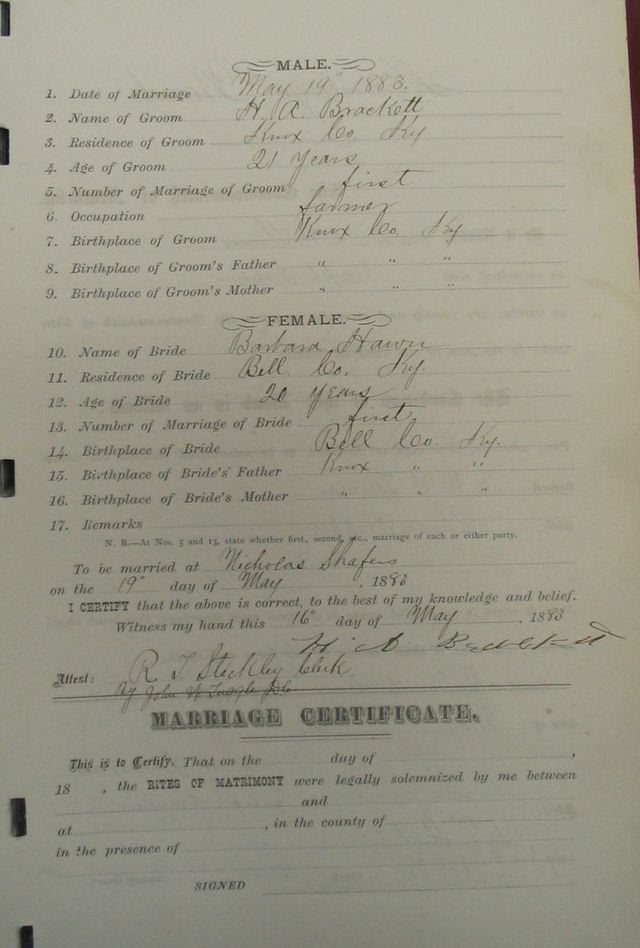 MALE.
1. Date of Marriage May 19" 1883.
2. Name of Groom H. A. Brackett
3. Residence of Groom Knox Co. Ky
4. Age of Groom 21 years
5. Number of Marriage of Groom first
6. Occupation farmer
7. Birthplace of Groom Knox Co. Ky
8. Birthplace of Groom's Father " " "
9. Birthplace of Groom's Mother " " "
FEMALE.
10. Name of Bride Barbara Hawn
11. Residence of Bride Bell Co. Ky.
12. Age of Bride 20 years
13. Number of Marriage of Bride first
14. Birthplace of Bride Bell Co. Ky.
15. Birthplace of Bride's Father Knox " "
16. Birthplace of Bride's Mother " " "
17. Remarks
N. B.—At Nos. 5 and 13, state whether first, second, &c., marriage of each or either party.
To be married at Nicholas Shafers
on the 19" day of May, 1883
I CERTIFY that the above is correct, to the best of my knowledge and belief.
Witness my hand this 16" day of May, 1883
H. A.
Attest: R. T. Steckley Clerk
By John W. Tuggle D.C.
MARRIAGE CERTIFICATE.
This is to Certify. That on the day of ,
18 , the RITES OF MATRIMONY were legally solemnized by me between
and
at , in the county of
in the presence of
SIGNED